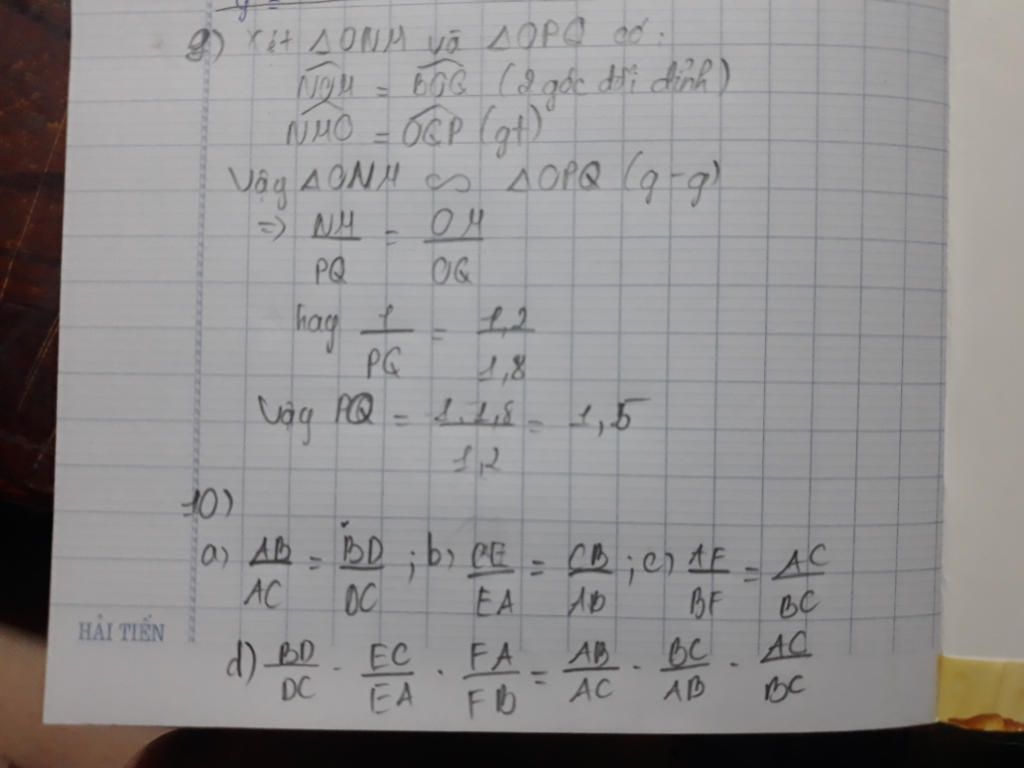 9) Xét △ONM và △OPQ có:
NOM = POQ (2 góc đối đỉnh)
NMO = OQP (gt)
Vậy △ONM ∽ △OPQ (g-g)
=> NM/PQ = OM/OQ
hay 1/PQ = 1,2/1,8
Vậy PQ = 1.1,8/1,2 = 1,5
10)
a) AB/AC = BD/DC ; b) CE/EA = CB/AB ; c) AF/BF = AC/BC
HẢI TIẾN
d) BD/DC . EC/EA . FA/FB = AB/AC . BC/AB . AC/BC